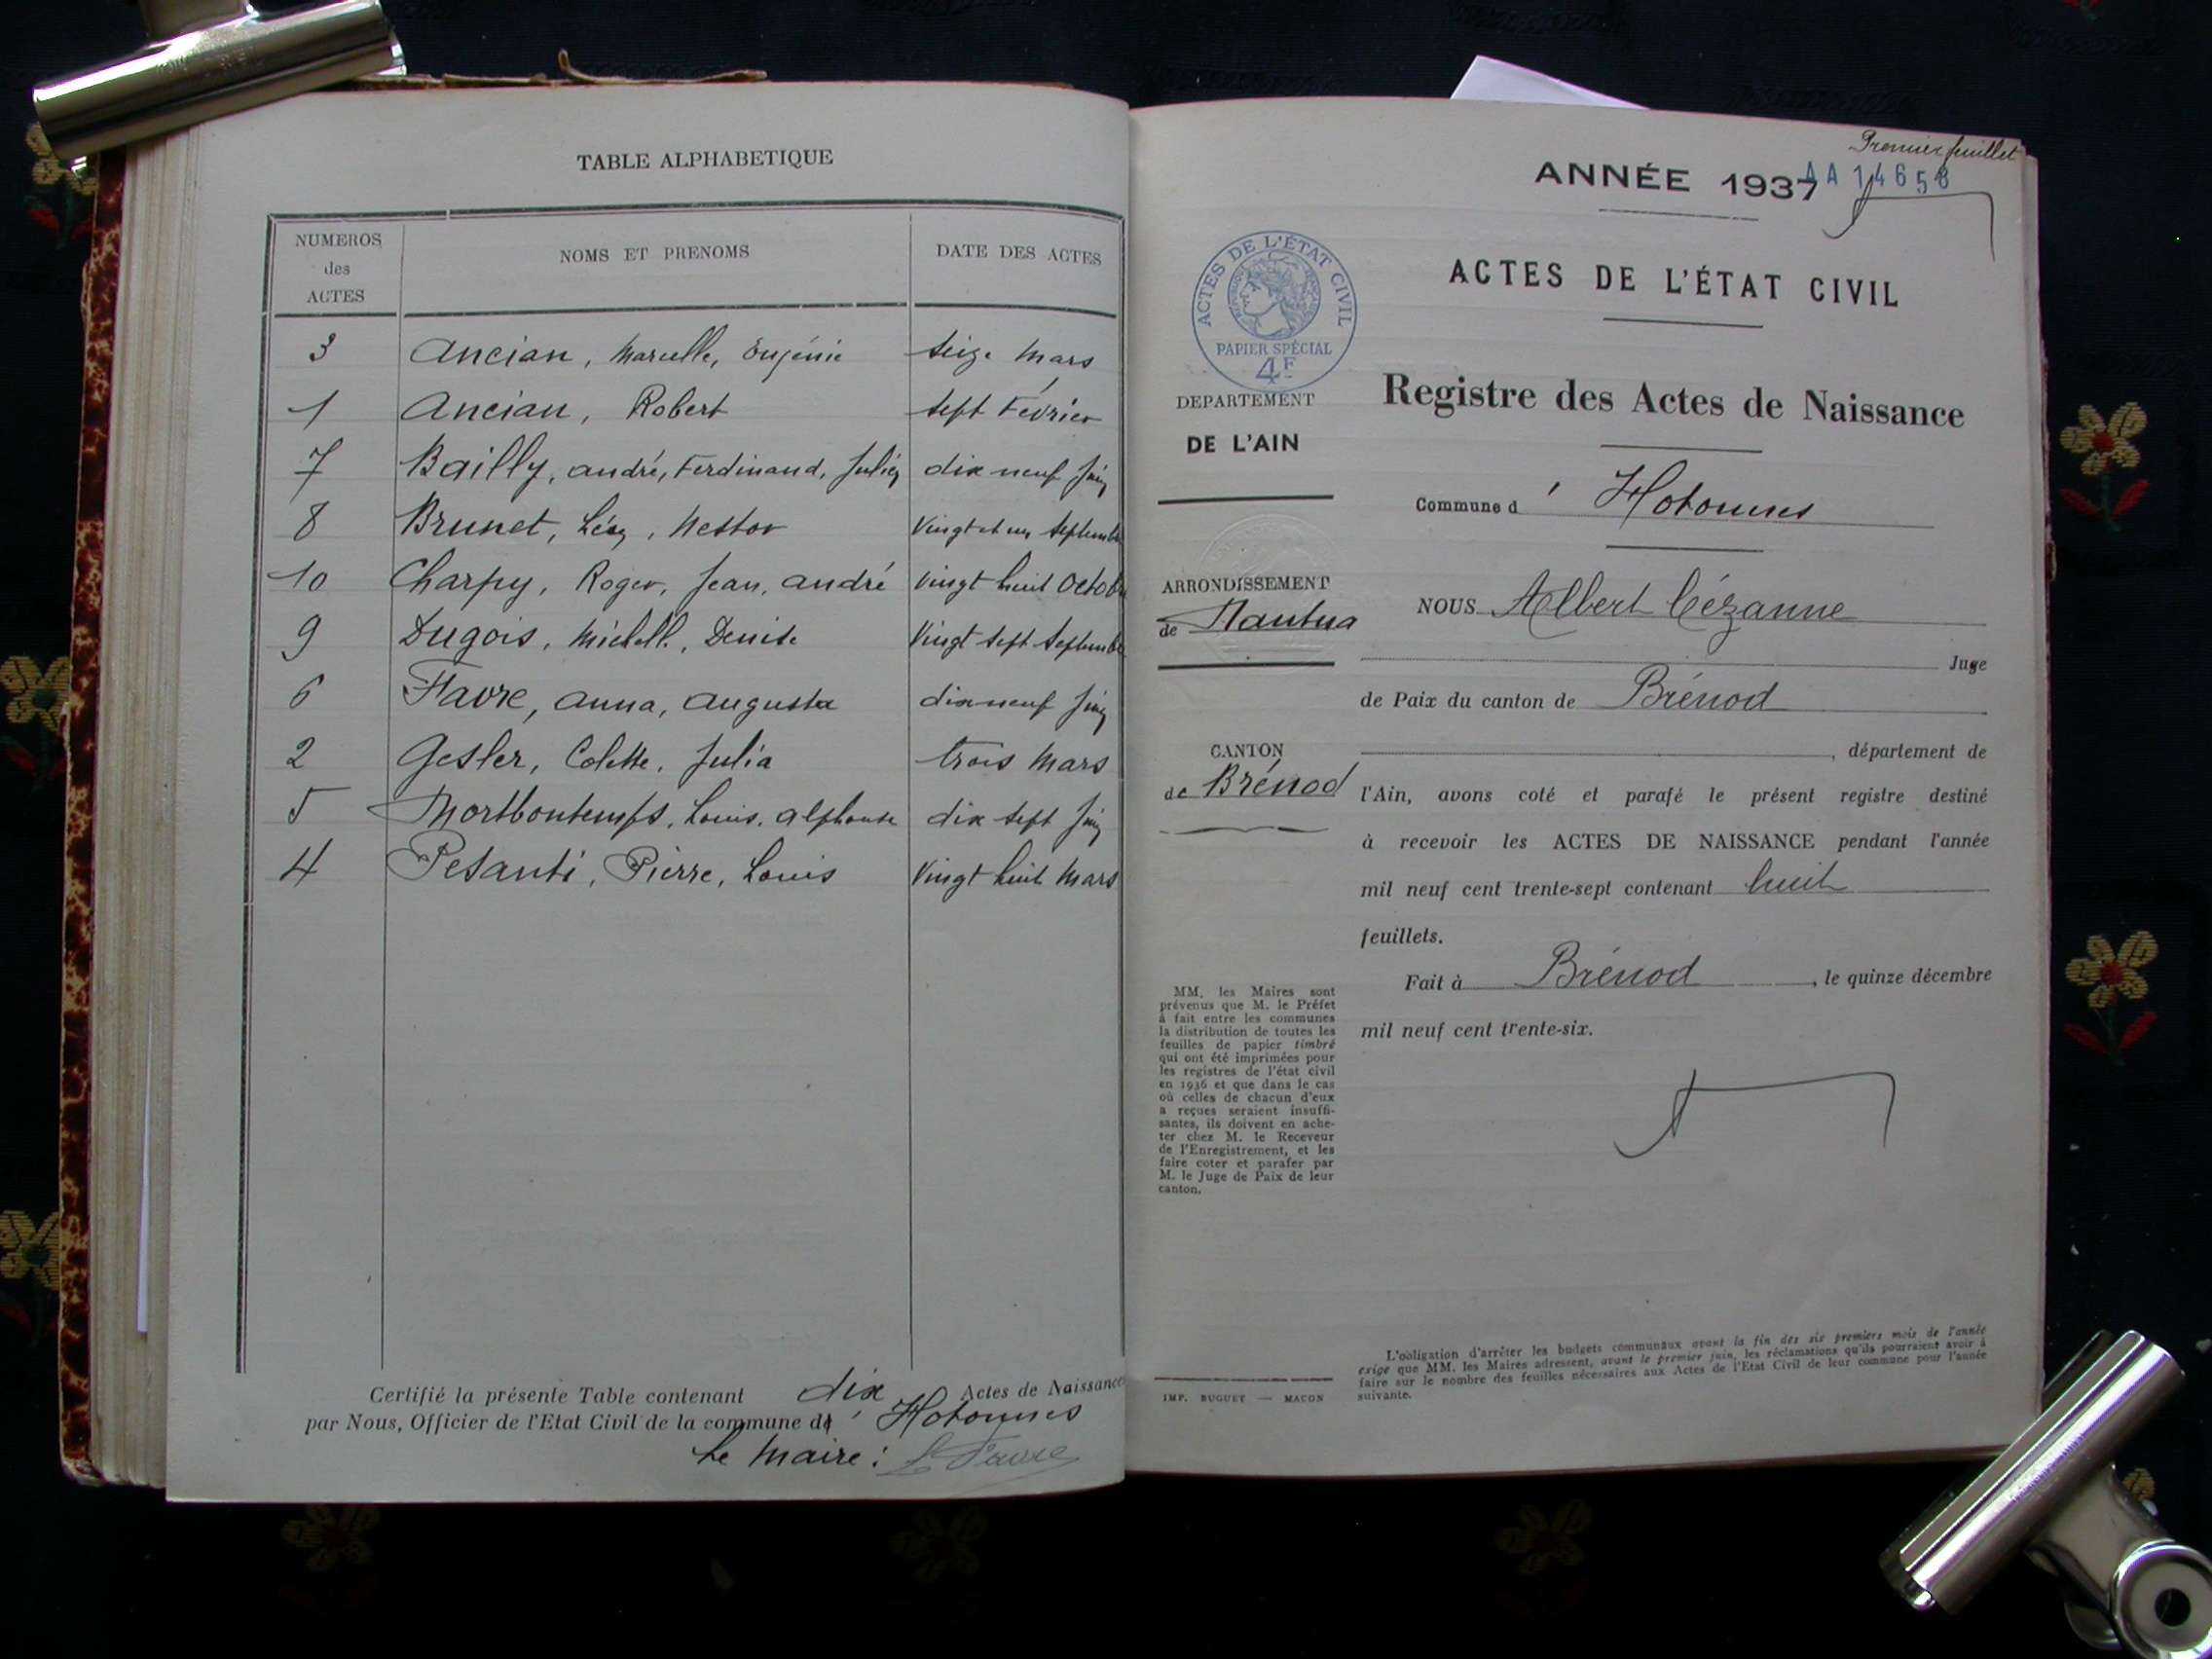 TABLE ALPHABETIQUE
NUMEROS des ACTES NOMS ET PRENOMS DATE DES ACTES
3 Ancian, Marcelle, Eugénie seize Mars
1 Ancian, Robert sept Février
7 Bailly, André, Ferdinand, Julien dix neuf Juin
8 Brunet, Léon, Nestor Vingt et un Septembre
10 Charpy, Roger, Jean, André Vingt huit Octobre
9 Dugois, Michelle, Denise Vingt sept Septembre
6 Favre, Anna, Augusta dix neuf Juin
2 Gesler, Colette, Julia trois Mars
5 Mortbontemps, Louis, Alphonse dix sept Juin
4 Pesanti, Pierre, Louis Vingt huit Mars
Certifié la présente Table contenant dix Actes de Naissance
par Nous, Officier de l'Etat Civil de la commune d' Hotonnes
Le Maire : Favre
Premier feuillet
ANNÉE 1937
AA 14658
ACTES DE L'ÉTAT CIVIL
ACTES DE L'ÉTAT CIVIL
RÉPUBLIQUE FRANÇAISE
PAPIER SPÉCIAL
4F
DEPARTEMENT
DE L'AIN
Registre des Actes de Naissance
Commune d ' Hotonnes
ARRONDISSEMENT
de Nantua
CANTON
de Brénod
NOUS Albert Cézanne
Juge
de Paix du canton de Brénod
, département de
l'Ain, avons coté et parafé le présent registre destiné
à recevoir les ACTES DE NAISSANCE pendant l'année
mil neuf cent trente-sept contenant huit
feuillets.
Fait à Brénod, le quinze décembre
mil neuf cent trente-six.
MM. les Maires sont
prévenus que M. le Préfet
à fait entre les communes
la distribution de toutes les
feuilles de papier timbré
qui ont été imprimées pour
les registres de l'état civil
en 1936 et que dans le cas
où celles de chacun d'eux
a reçues seraient insuffi-
santes, ils doivent en ache-
ter chez M. le Receveur
de l'Enregistrement, et les
faire coter et parafer par
M. le Juge de Paix de leur
canton.
IMP. BUGUET — MACON
L'obligation d'arrêter les budgets communaux avant la fin des six premiers mois de l'année
exige que MM. les Maires adressent, avant le premier juin, les réclamations qu'ils pourraient avoir à
faire sur le nombre des feuilles nécessaires aux Actes de l'Etat Civil de leur commune pour l'année
suivante.